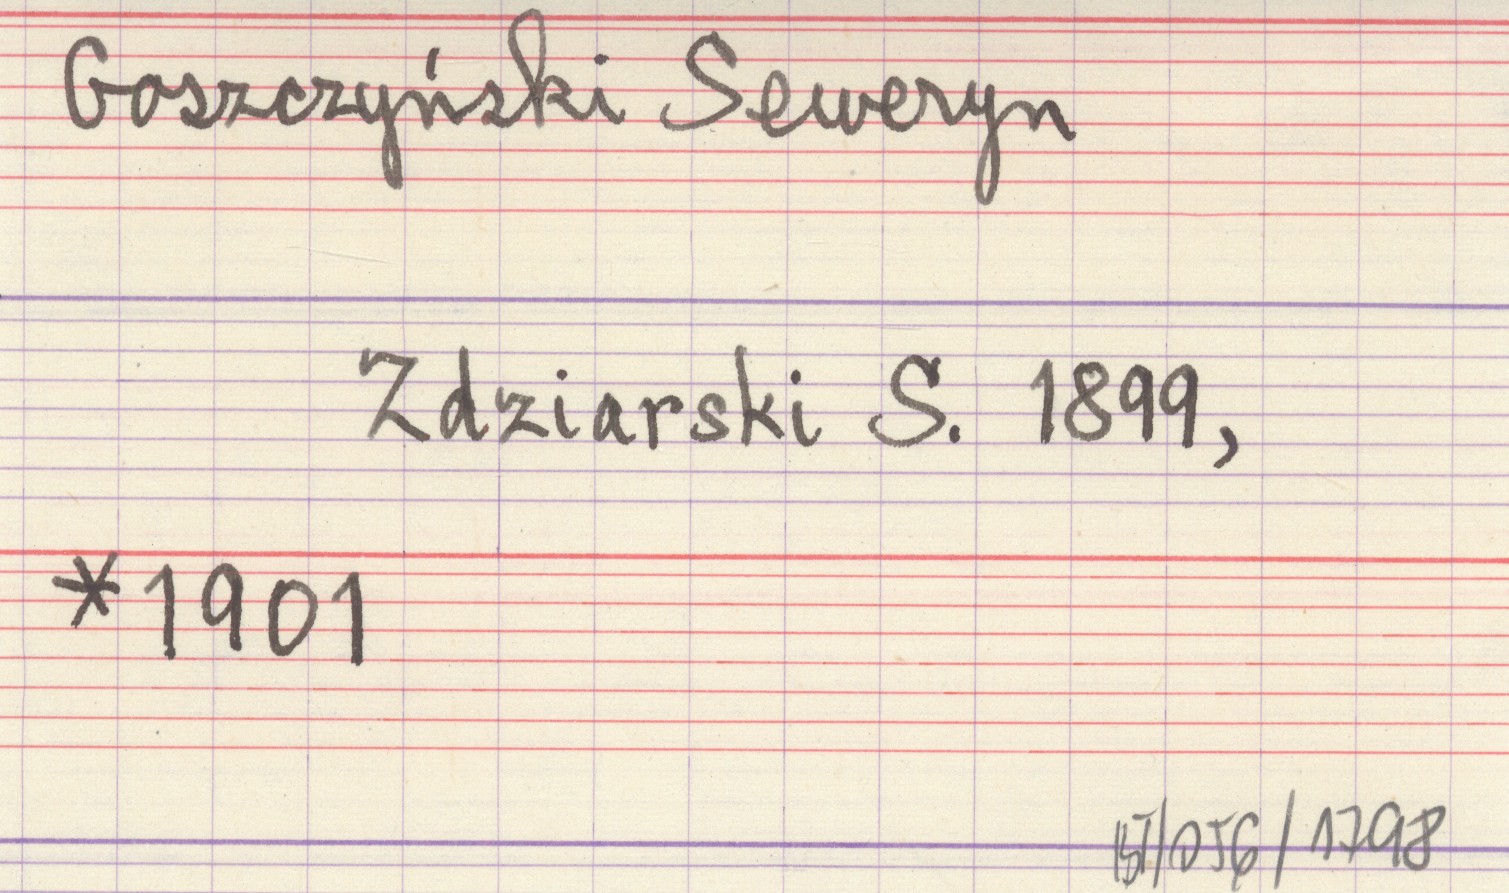 Goszczyński Seweryn
Zdziarski S. 1899,
*1901
BJ/DJG/1798